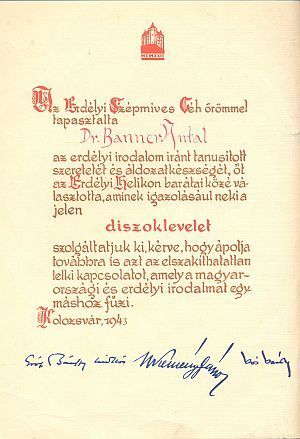 MCMXXIV
Az Erdélyi Szépmives Céh örömmel
tapasztalta
Dr. Banner Antal
az erdélyi irodalom iránt tanusitott
szeretetét és áldozatkészségét, őt
az Erdélyi Helikon barátai közé vá-
lasztotta, aminek igazolásául neki a
jelen
diszoklevelet
szolgáltatjuk ki, kérve, hogy ápolja
továbbra is azt az elszakithatatlan
lelki kapcsolatot, amely a magyar-
országi és erdélyi irodalmat egy-
máshoz füzi.
Kolozsvár, 1943
Bánffy Kemény János